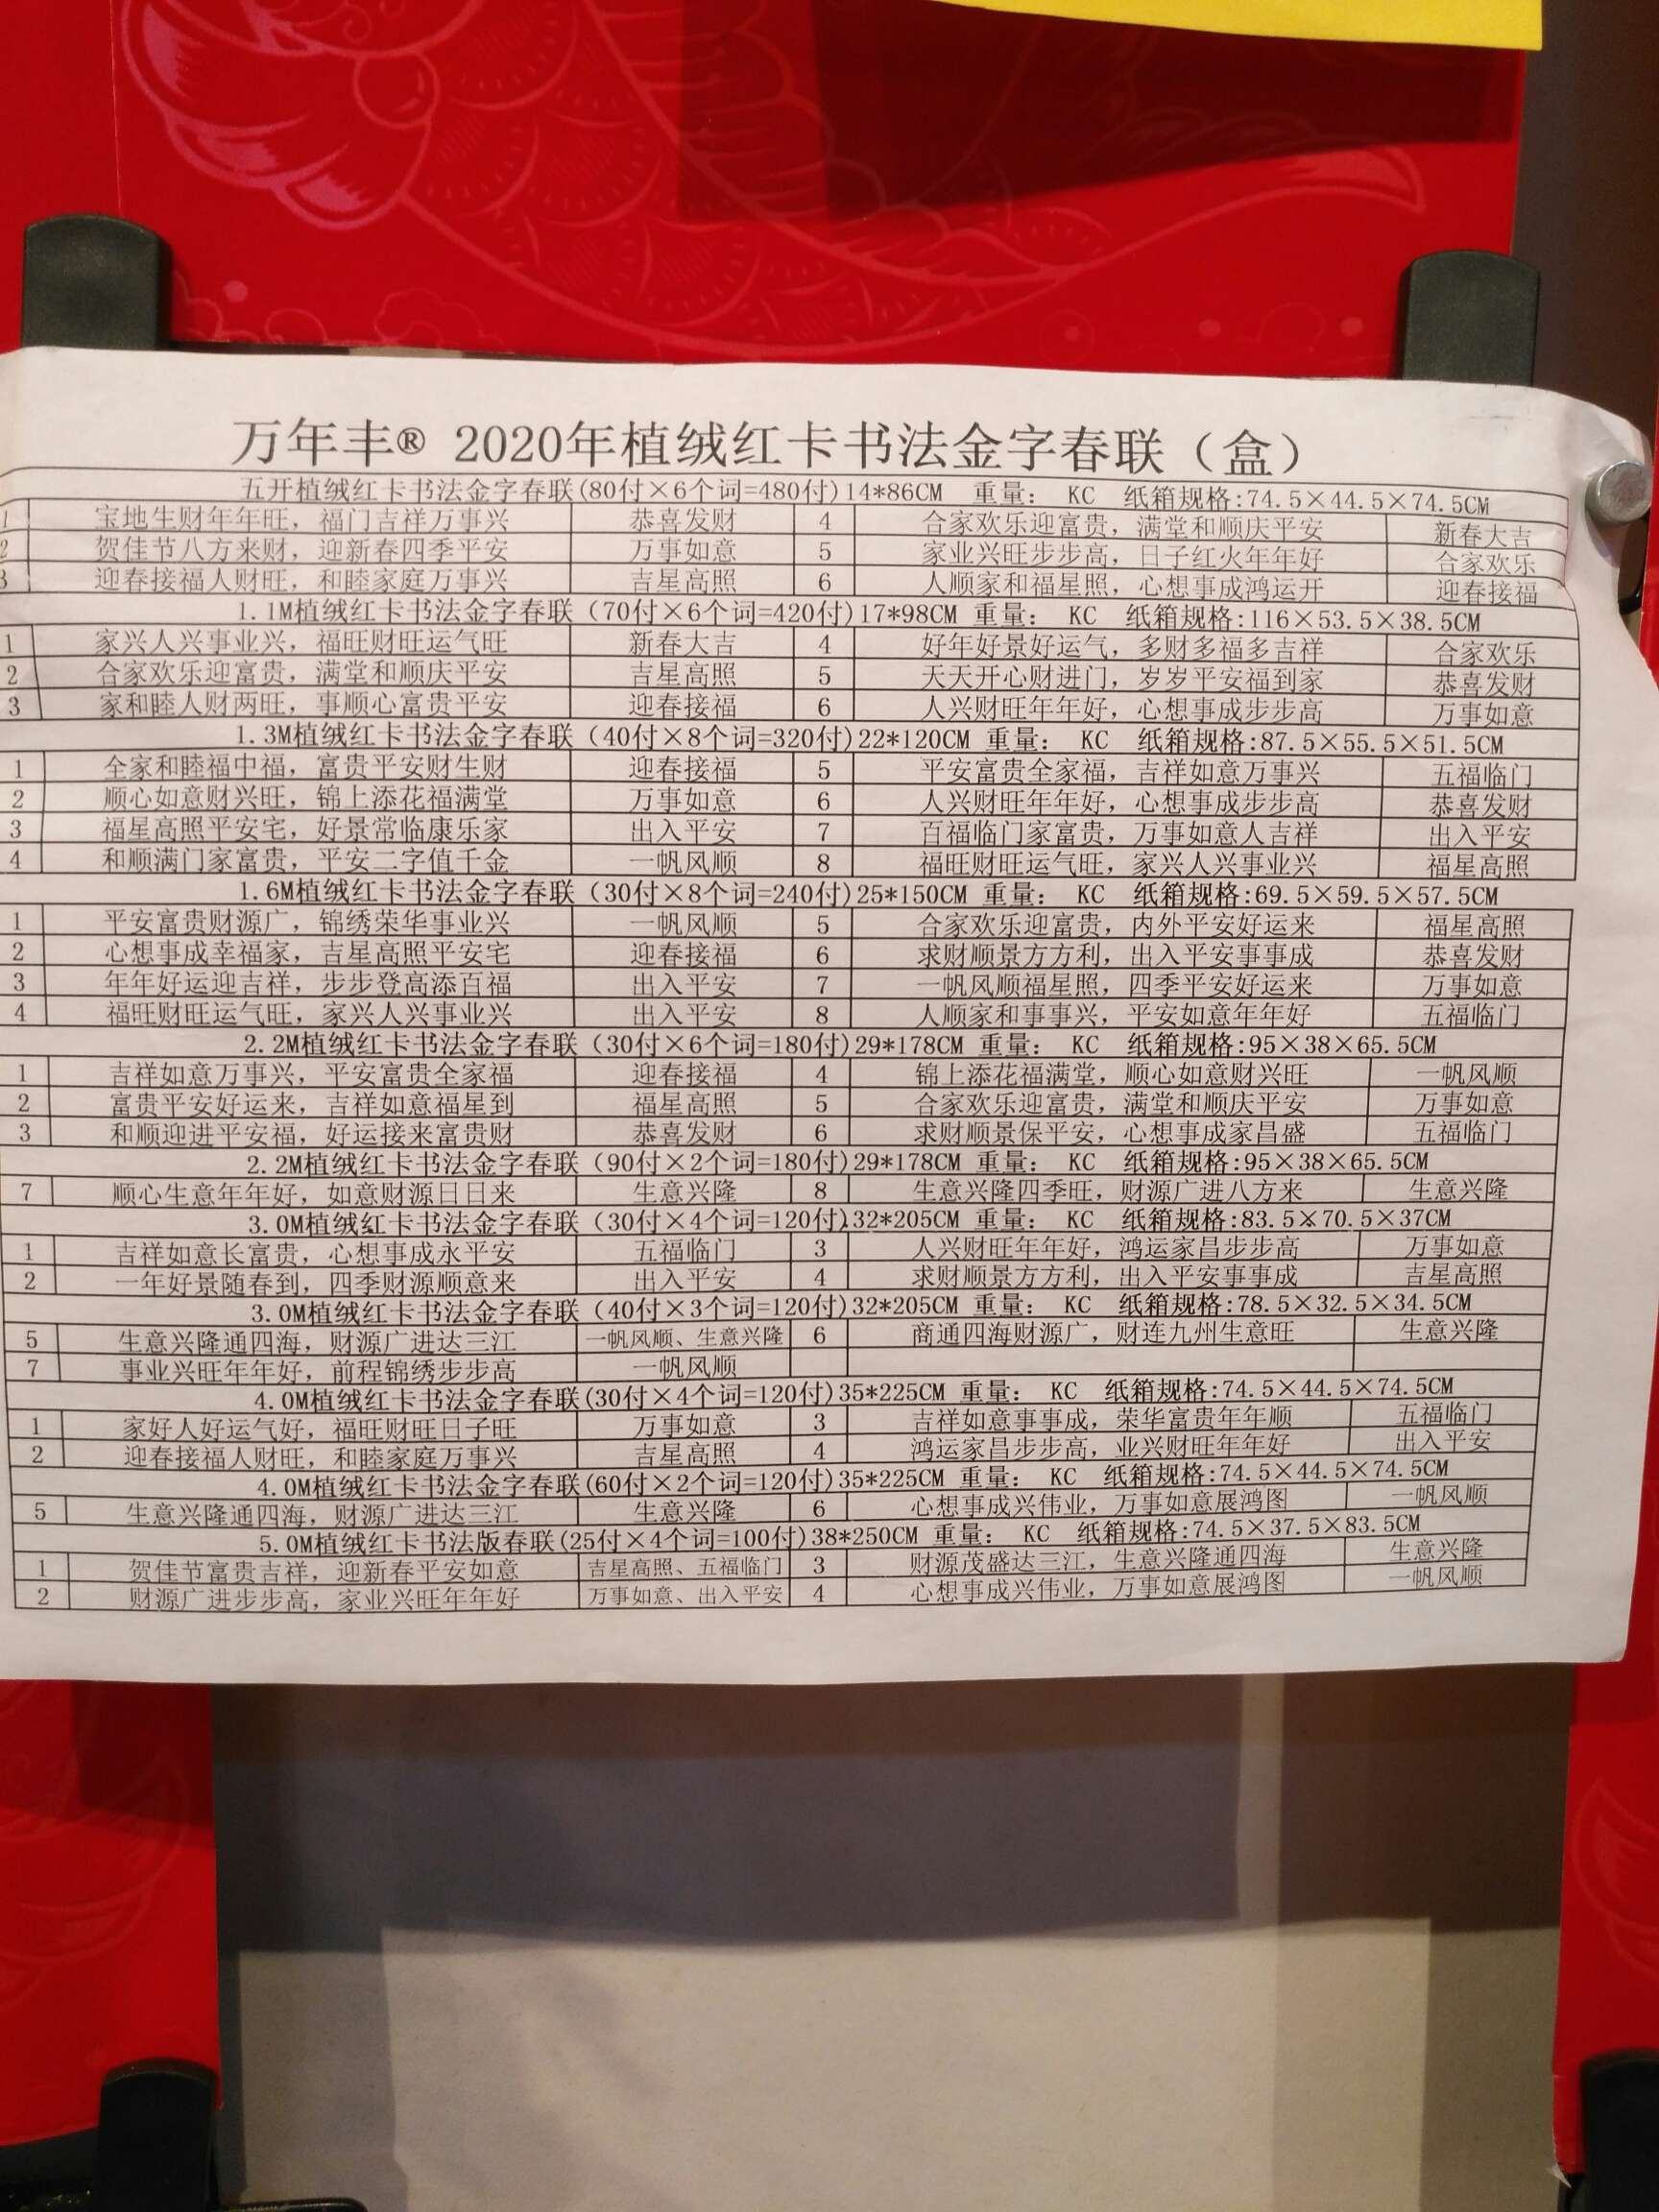 万年丰® 2020年植绒红卡书法金字春联（盒）
五开植绒红卡书法金字春联(80付×6个词=480付)14*86CM 重量： KC 纸箱规格:74.5×44.5×74.5CM
1 宝地生财年年旺，福门吉祥万事兴 恭喜发财 4 合家欢乐迎富贵，满堂和顺庆平安 新春大吉
2 贺佳节八方来财，迎新春四季平安 万事如意 5 家业兴旺步步高，日子红火年年好 合家欢乐
3 迎春接福人财旺，和睦家庭万事兴 吉星高照 6 人顺家和福星照，心想事成鸿运开 迎春接福
1.1M植绒红卡书法金字春联（70付×6个词=420付)17*98CM 重量： KC 纸箱规格:116×53.5×38.5CM
1 家兴人兴事业兴，福旺财旺运气旺 新春大吉 4 好年好景好运气，多财多福多吉祥 合家欢乐
2 合家欢乐迎富贵，满堂和顺庆平安 吉星高照 5 天天开心财进门，岁岁平安福到家 恭喜发财
3 家和睦人财两旺，事顺心富贵平安 迎春接福 6 人兴财旺年年好，心想事成步步高 万事如意
1.3M植绒红卡书法金字春联（40付×8个词=320付)22*120CM 重量： KC 纸箱规格:87.5×55.5×51.5CM
1 全家和睦福中福，富贵平安财生财 迎春接福 5 平安富贵全家福，吉祥如意万事兴 五福临门
2 顺心如意财兴旺，锦上添花福满堂 万事如意 6 人兴财旺年年好，心想事成步步高 恭喜发财
3 福星高照平安宅，好景常临康乐家 出入平安 7 百福临门家富贵，万事如意人吉祥 出入平安
4 和顺满门家富贵，平安二字值千金 一帆风顺 8 福旺财旺运气旺，家兴人兴事业兴 福星高照
1.6M植绒红卡书法金字春联（30付×8个词=240付)25*150CM 重量： KC 纸箱规格:69.5×59.5×57.5CM
1 平安富贵财源广，锦绣荣华事业兴 一帆风顺 5 合家欢乐迎富贵，内外平安好运来 福星高照
2 心想事成幸福家，吉星高照平安宅 迎春接福 6 求财顺景方方利，出入平安事事成 恭喜发财
3 年年好运迎吉祥，步步登高添百福 出入平安 7 一帆风顺福星照，四季平安好运来 万事如意
4 福旺财旺运气旺，家兴人兴事业兴 出入平安 8 人顺家和事事兴，平安如意年年好 五福临门
2.2M植绒红卡书法金字春联（30付×6个词=180付)29*178CM 重量： KC 纸箱规格:95×38×65.5CM
1 吉祥如意万事兴，平安富贵全家福 迎春接福 4 锦上添花福满堂，顺心如意财兴旺 一帆风顺
2 富贵平安好运来，吉祥如意福星到 福星高照 5 合家欢乐迎富贵，满堂和顺庆平安 万事如意
3 和顺迎进平安福，好运接来富贵财 恭喜发财 6 求财顺景保平安，心想事成家昌盛 五福临门
2.2M植绒红卡书法金字春联（90付×2个词=180付)29*178CM 重量： KC 纸箱规格:95×38×65.5CM
7 顺心生意年年好，如意财源日日来 生意兴隆 8 生意兴隆四季旺，财源广进八方来 生意兴隆
3.0M植绒红卡书法金字春联（30付×4个词=120付)32*205CM 重量： KC 纸箱规格:83.5×70.5×37CM
1 吉祥如意长富贵，心想事成永平安 五福临门 3 人兴财旺年年好，鸿运家昌步步高 万事如意
2 一年好景随春到，四季财源顺意来 出入平安 4 求财顺景方方利，出入平安事事成 吉星高照
3.0M植绒红卡书法金字春联（40付×3个词=120付)32*205CM 重量： KC 纸箱规格:78.5×32.5×34.5CM
5 生意兴隆通四海，财源广进达三江 一帆风顺、生意兴隆 6 商通四海财源广，财连九州生意旺 生意兴隆
7 事业兴旺年年好，前程锦绣步步高 一帆风顺
4.0M植绒红卡书法金字春联(30付×4个词=120付)35*225CM 重量： KC 纸箱规格:74.5×44.5×74.5CM
1 家好人好运气好，福旺财旺日子旺 万事如意 3 吉祥如意事事成，荣华富贵年年顺 五福临门
2 迎春接福人财旺，和睦家庭万事兴 吉星高照 4 鸿运家昌步步高，业兴财旺年年好 出入平安
4.0M植绒红卡书法金字春联(60付×2个词=120付)35*225CM 重量： KC 纸箱规格:74.5×44.5×74.5CM
5 生意兴隆通四海，财源广进达三江 生意兴隆 6 心想事成兴伟业，万事如意展鸿图 一帆风顺
5.0M植绒红卡书法版春联(25付×4个词=100付)38*250CM 重量： KC 纸箱规格:74.5×37.5×83.5CM
1 贺佳节富贵吉祥，迎新春平安如意 吉星高照、五福临门 3 财源茂盛达三江，生意兴隆通四海 生意兴隆
2 财源广进步步高，家业兴旺年年好 万事如意、出入平安 4 心想事成兴伟业，万事如意展鸿图 一帆风顺